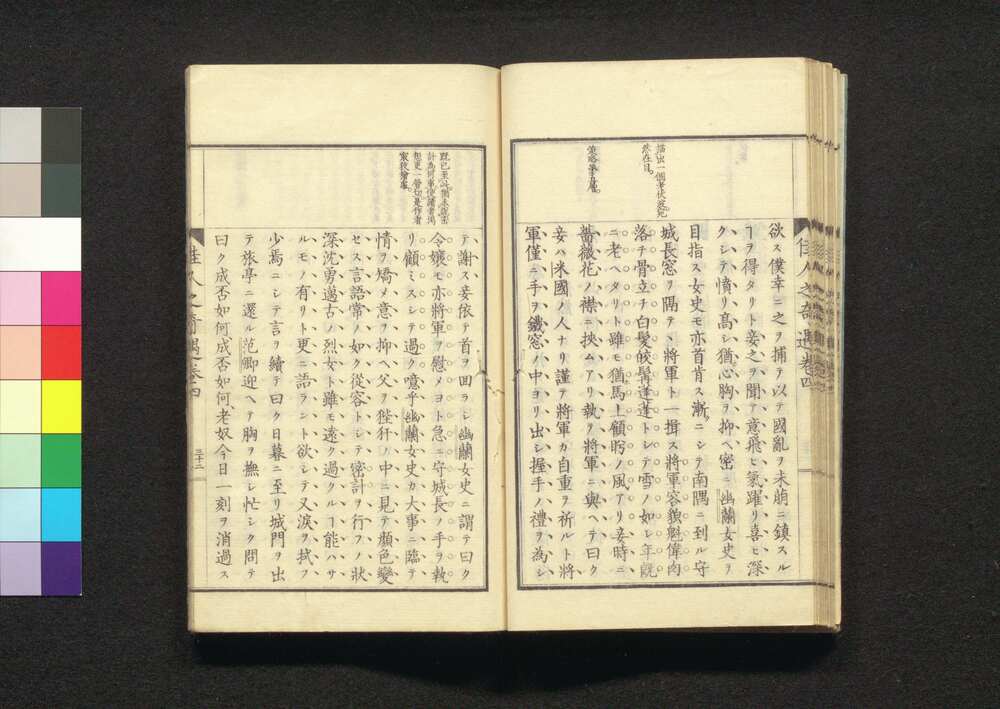 佳人之奇遇卷四
欲ス僕幸ニ之ヲ捕テ以テ國亂ヲ未萠ニ鎮スル
ヿヲ得タリト妾之ヲ聞テ意飛ヒ氣躍リ喜ヒ深
クシテ憤リ髙シ猶心胸ヲ抑ヘ密ニ幽蘭女史ヲ
目指ス女史モ亦首肯ス漸ニシテ南隅ニ到ル守
城長窓ヲ隔テヽ將軍ト一揖ス將軍容貌魁偉肉
落チ骨立チ白髮皎髯蓬蓬トシテ雪ノ如シ年既
ニ老ヘタリト雖モ猶馬上顧眄ノ風アリ妾時ニ
薔薇花ノ襟ニ挾ムアリ執テ將軍ニ與ヘテ曰ク
妾ハ米國ノ人ナリ謹テ將軍カ自重ヲ祈ルト將
軍僅ニ手ヲ鐵窓ノ中ヨリ出シ握手ノ禮ヲ為シ
テ謝ス妾依テ首ヲ回ラシ幽蘭女史ニ謂テ曰ク
令孃モ亦將軍ヲ慰メヨト急ニ守城長ノ手ヲ執
リ顧ミスシテ過ク噫乎幽蘭女史カ大事ニ臨テ
情ヲ矯メ意ヲ抑ヘ父ヲ狴犴ノ中ニ見テ顔色變
セス言語常ノ如ク從容トシテ密計ヲ行フノ狀
深沈勇邁古ノ烈女ト雖モ遠ク過クルヿ能ハサ
ルモノ有リト更ニ語ラント欲シテ又淚ヲ拭フ
少焉ニシテ言ヲ續テ曰ク日暮ニ至リ城門ヲ出
テ旅亭ニ還ル范卿迎ヘテ胸ヲ撫シ忙シク問テ
曰ク成否如何成否如何老奴今日一刻ヲ消過ス
佳人之奇遇 卷四
三十二